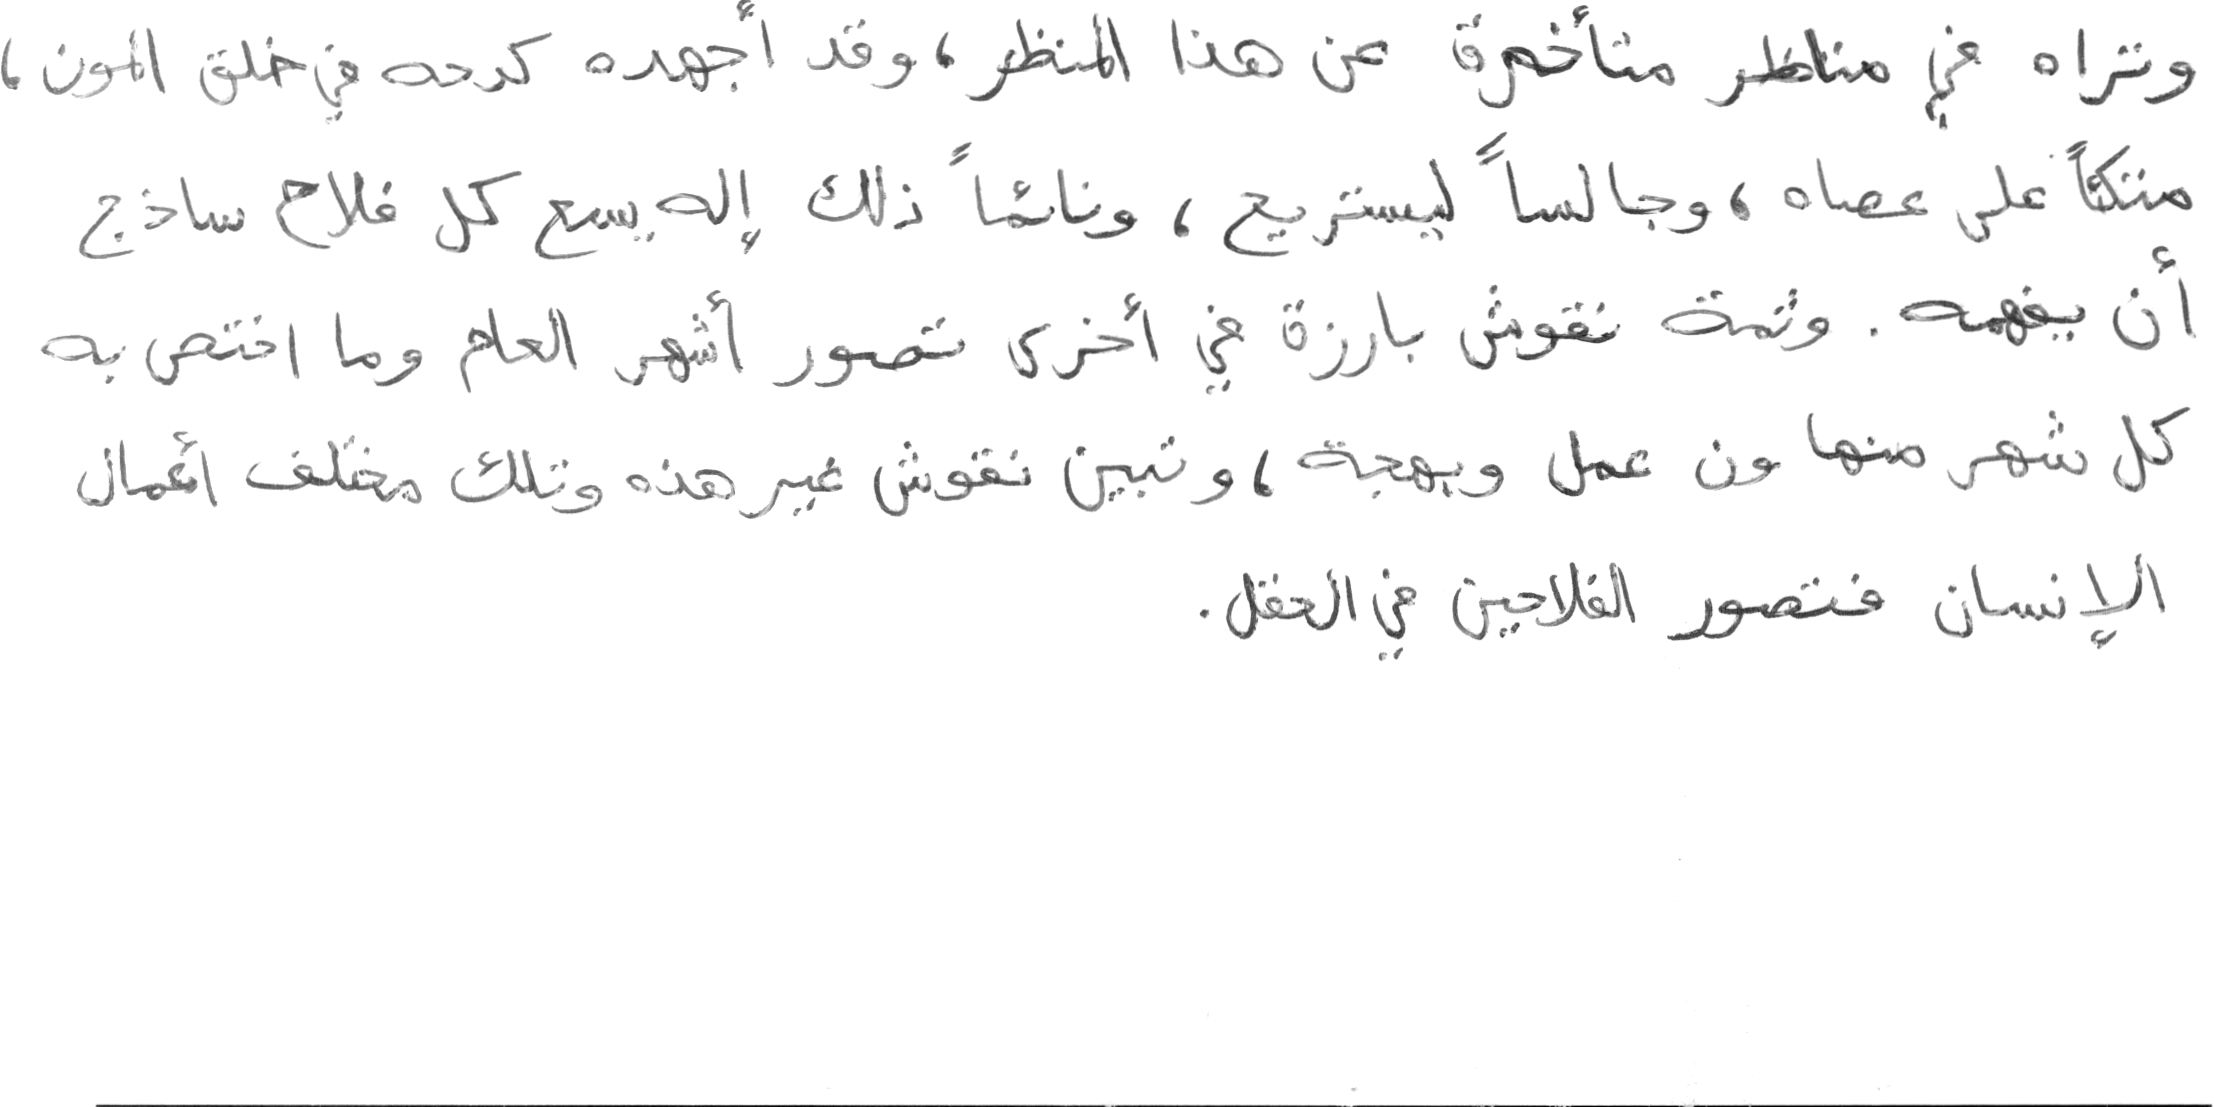 وتراه في مناظر متأخرة عن هذا المنظر، وقد أجهده كدحه في خلق المون،
متكئاً على عصاه، وجالساً ليستريح، ونائماً ذلك إله يسع كل فلاح ساذج
أن يفهمه. وثمة نقوش بارزة في أخرى تصور أشهر العام وما اختص به
كل شهر منها من عمل وبهجة، وتبين نقوش غير هذه وتلك مختلف أعمال
الإنسان فتصور الفلاحين في الحقل.